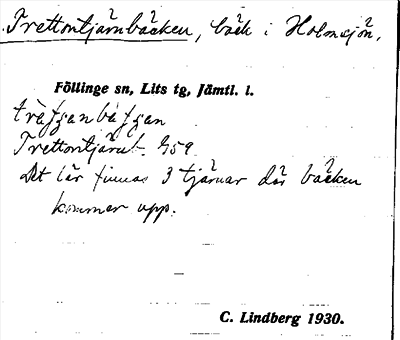 Trettontjärnbäcken, bäck i Holmsjön.
Föllinge sn, Lits tg, Jämtl. l.
Trettontjärnb. G59
Det lär finnas 3 tjärnar där bäcken
kommer upp.
C. Lindberg 1930.